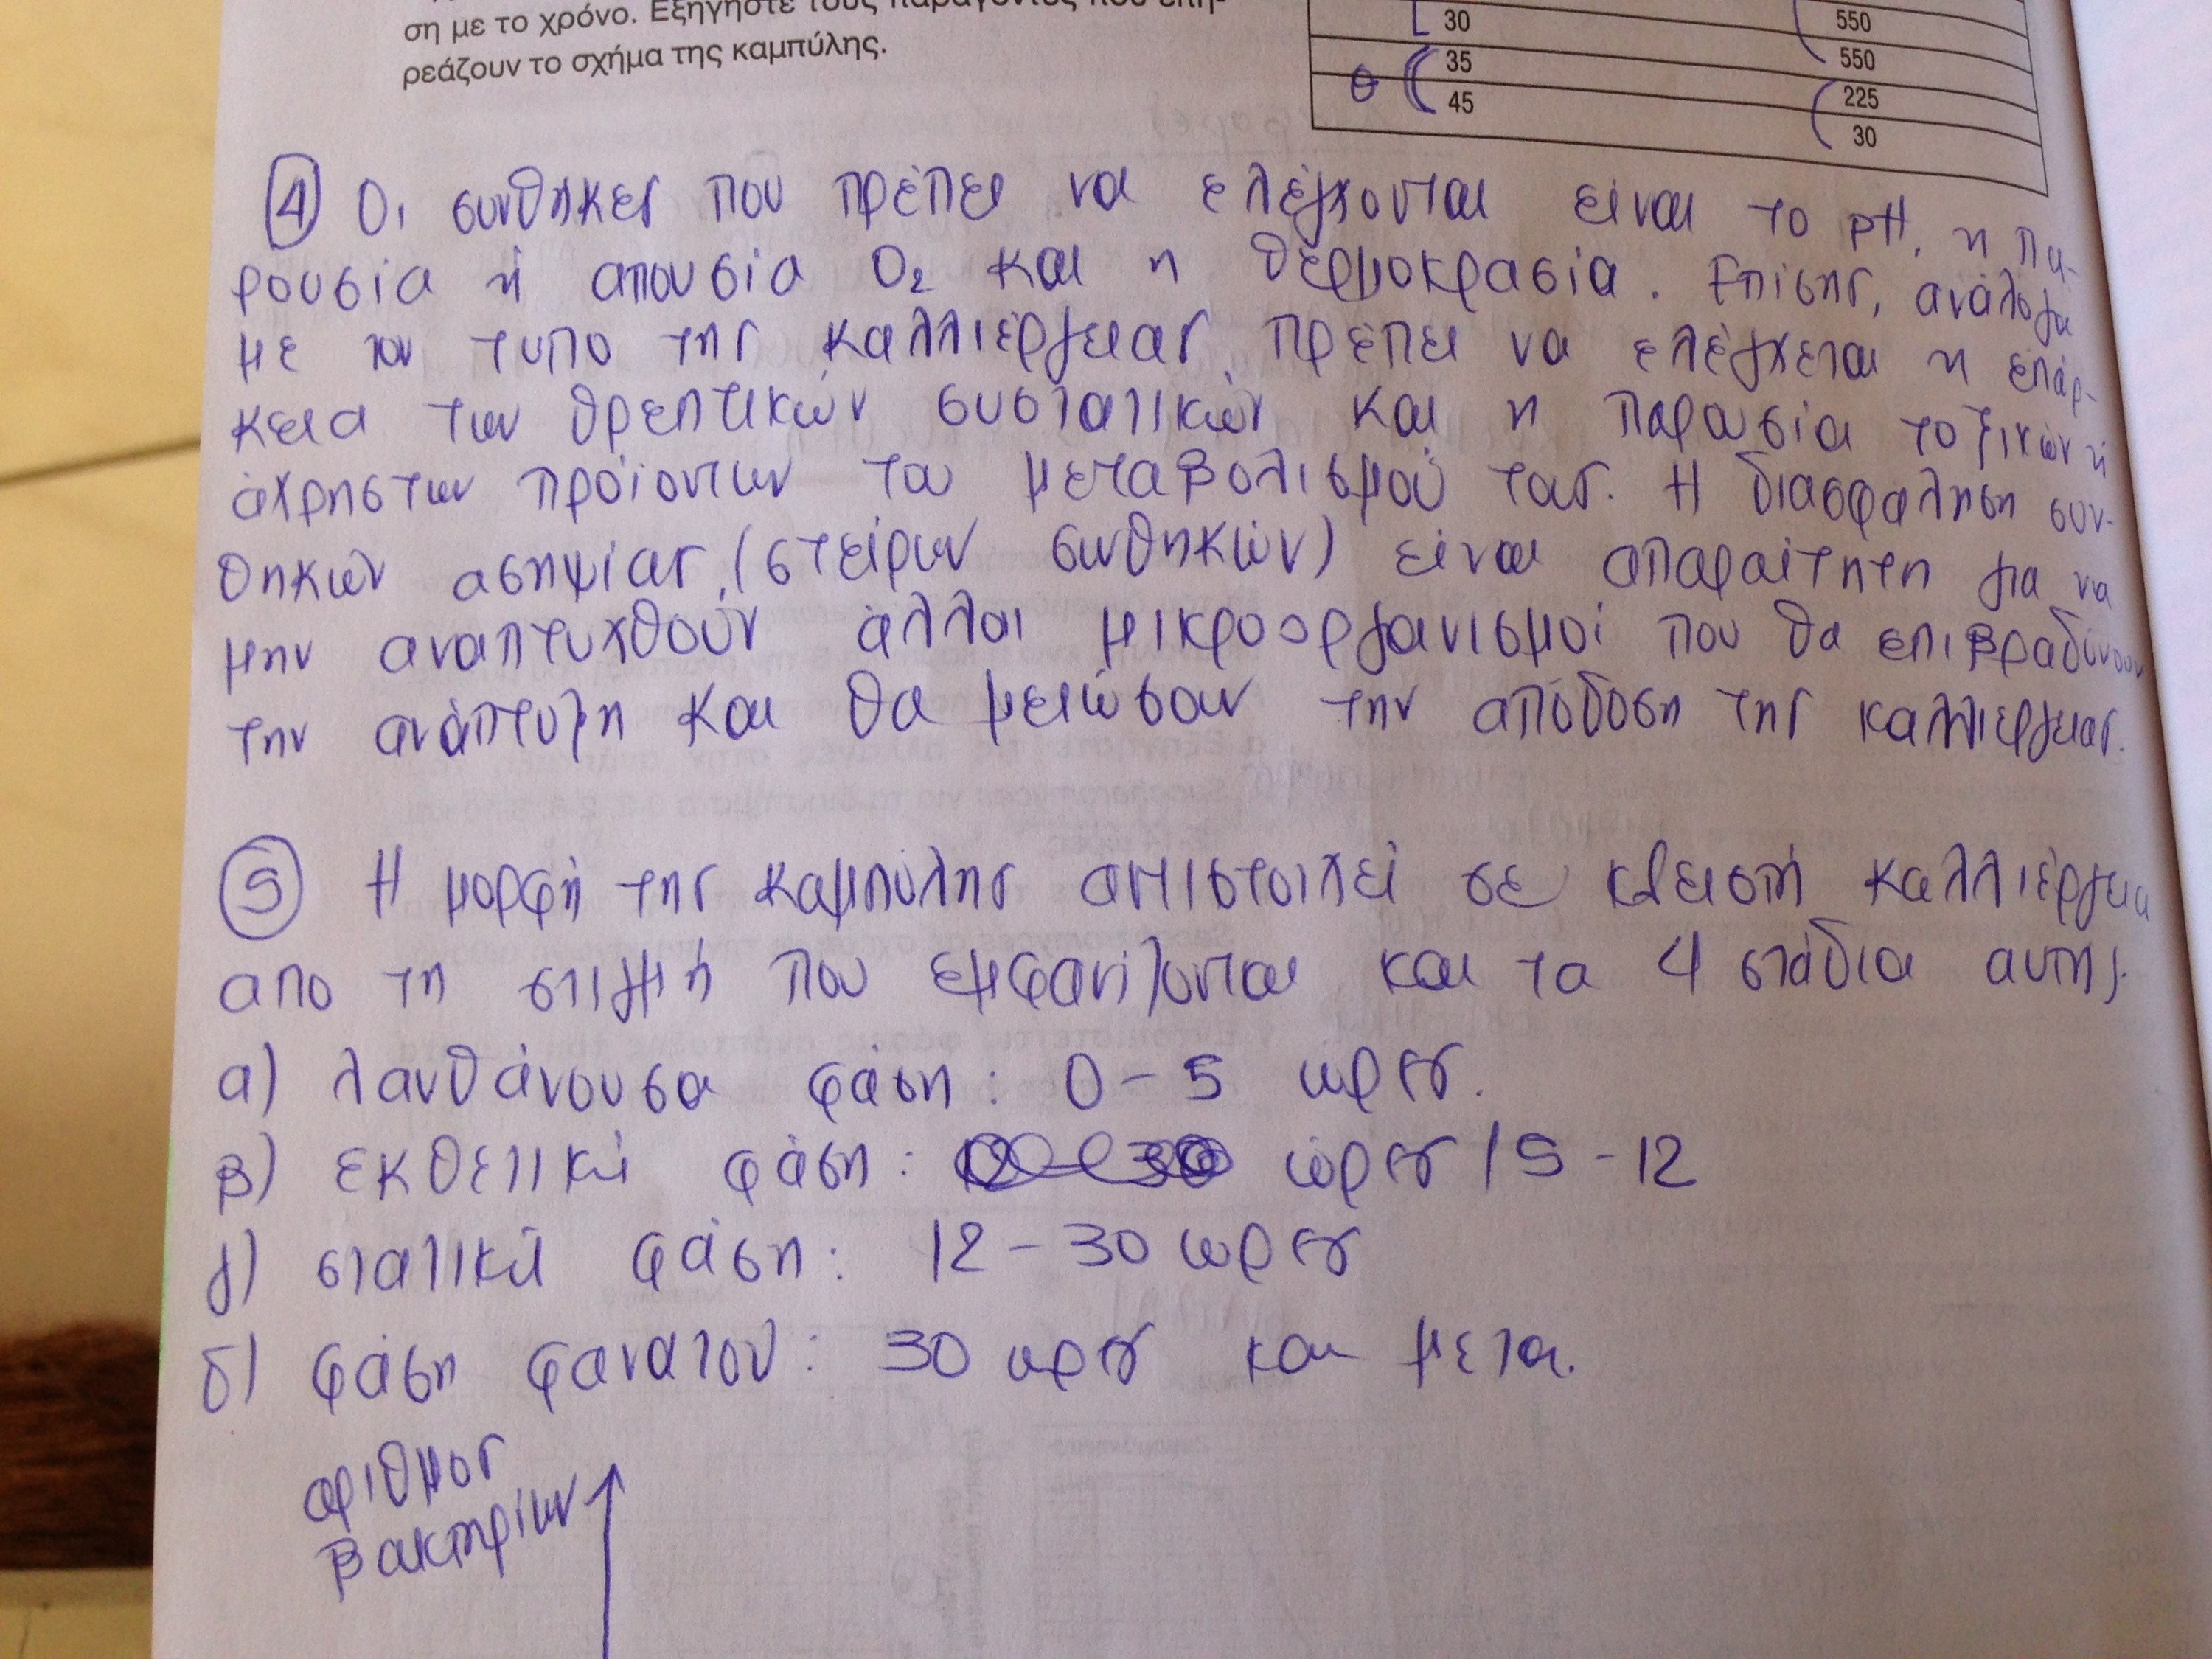 ση με το χρόνο. Εξηγήστε τους παράγοντες που επη-
ρεάζουν το σχήμα της καμπύλης.
30 550
35 550
θ 45 225
30
4 Οι συνθηκες που πρέπει να ελέγχονται είναι το pH, η πα-
ρουσία ή απουσία O2 και η θερμοκρασία. Επίσης, ανάλογα
με τον τυπο της καλλιέργειας πρέπει να ελέγχεται η επάρ-
κεια των θρεπτικών συστατικών και η παρουσία τοξικών ή
άχρηστων προϊοντων του μεταβολισμού τους. Η διασφαληση συν-
θηκών ασηψίας (στείρων συνθηκών) είναι απαραίτητη για να
μην αναπτυχθούν άλλοι μικροοργανισμοί που θα επιβραδύνουν
την ανάπτυξη και θα μειώσουν την απόδοση της καλλιεργειας.
5 Η μορφή της καμπύλης αντιστοιχεί σε κλειστή καλλιέργεια
απο τη στιγμή που εμφανίζονται και τα 4 στάδια αυτής.
α) λανθάνουσα φάση: 0-5 ώρες.
β) εκθετική φάση: ώρες / 5-12
γ) στατική φάση: 12-30 ωρες
δ) φάση φανατου: 30 ωρες και μετα.
αριθμος
βακτηρίων